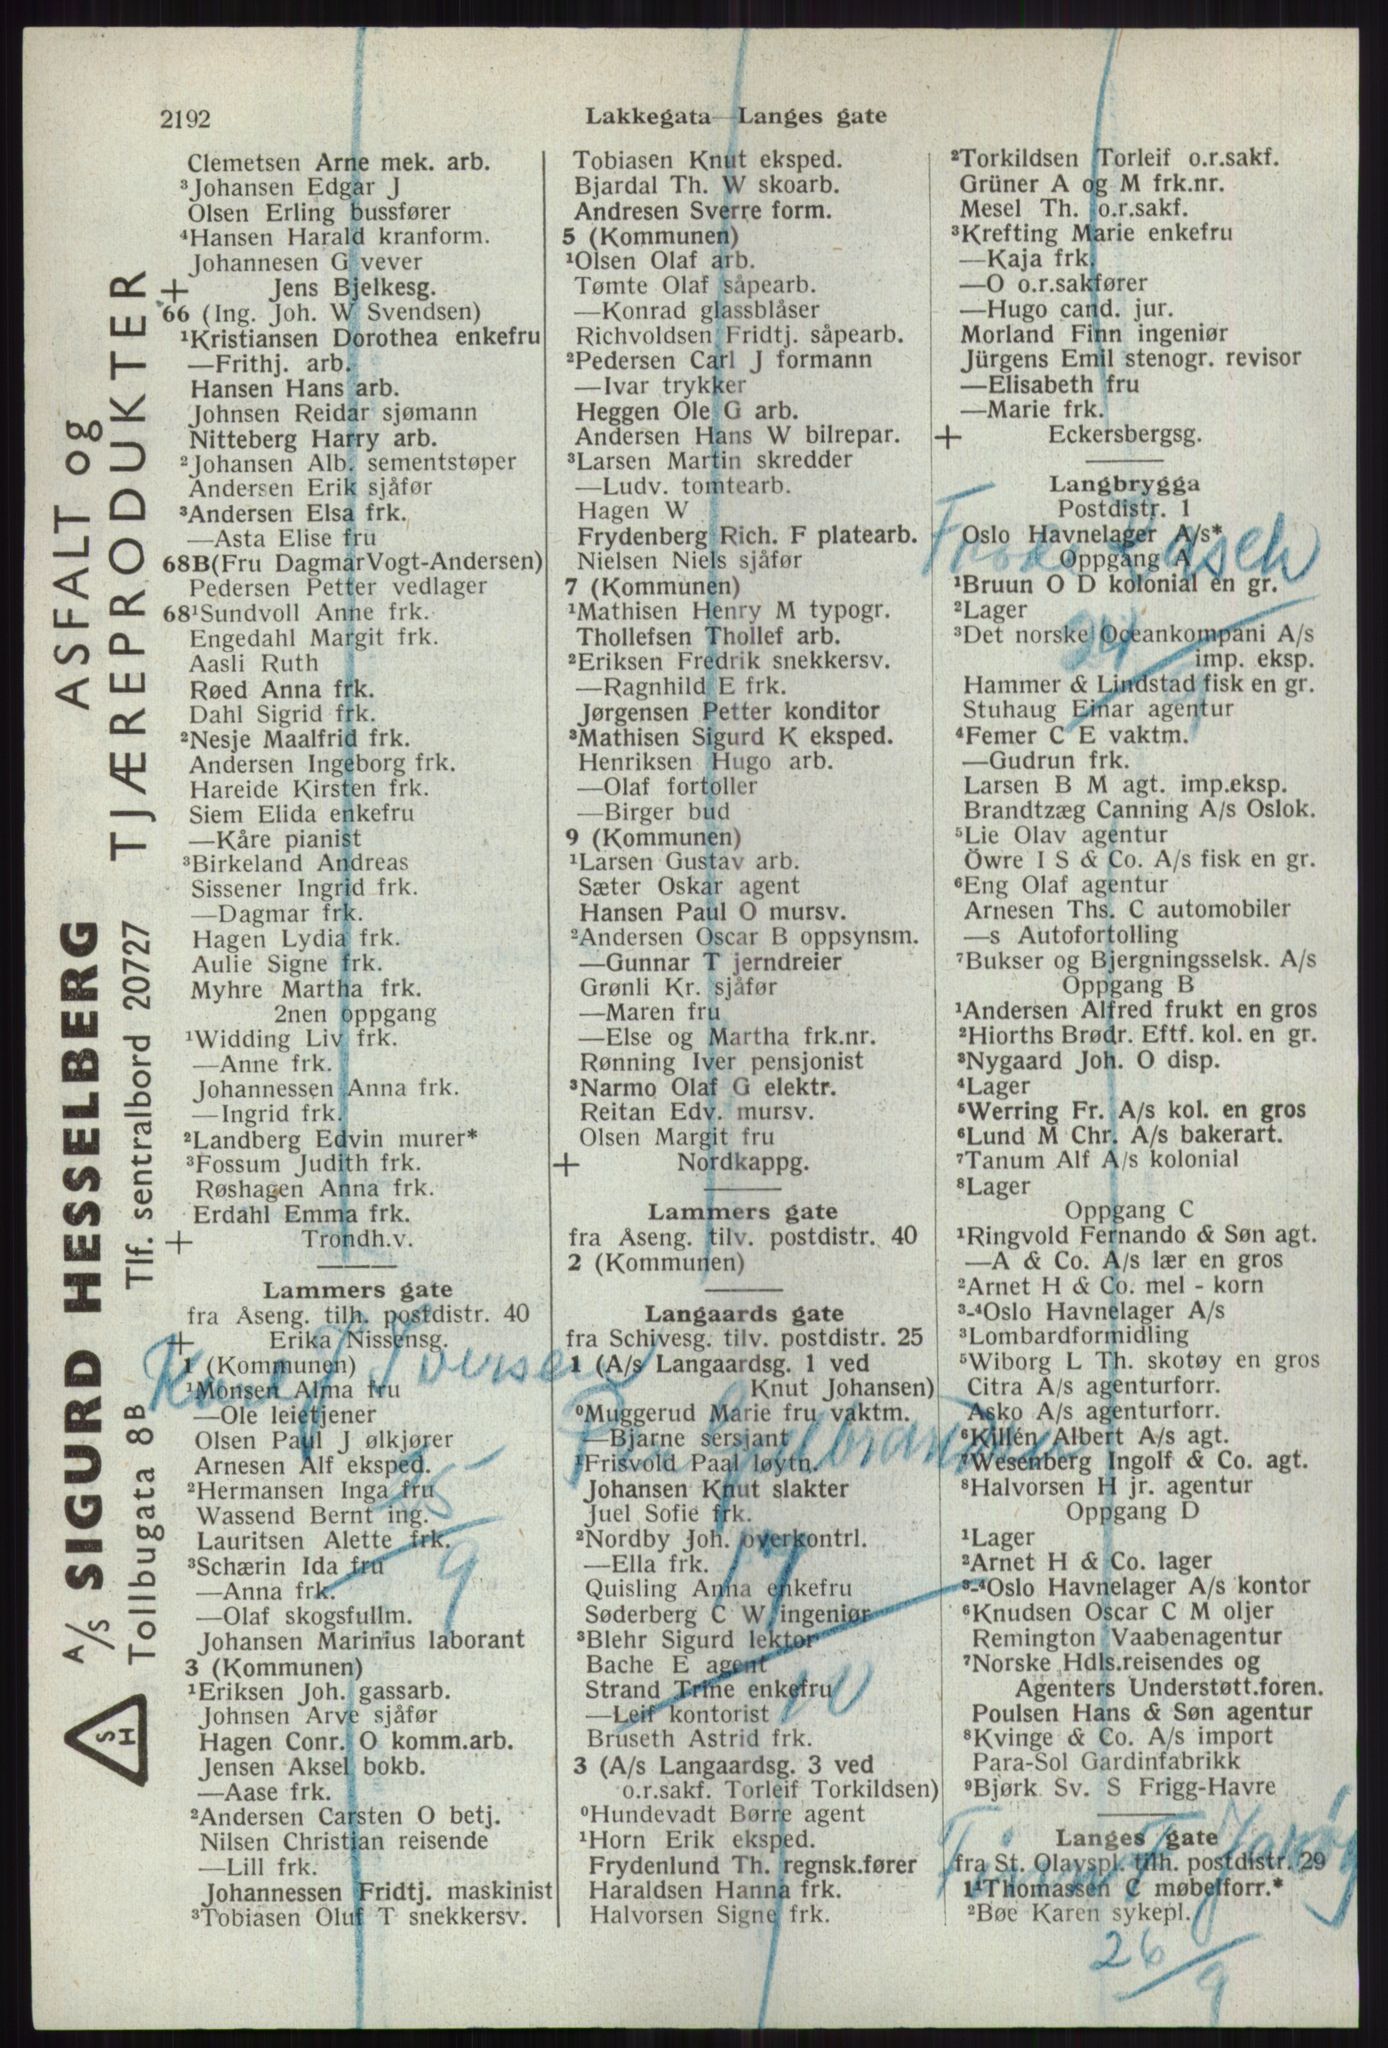 2192
Lakkegata—Langes gate
Clemetsen Arne mek. arb.
³Johansen Edgar J
Olsen Erling bussfører
⁴Hansen Harald kranform.
Johannesen G vever
+ Jens Bjelkesg.
66 (Ing. Joh. W Svendsen)
¹Kristiansen Dorothea enkefru
—Frithj. arb.
Hansen Hans arb.
Johnsen Reidar sjømann
Nitteberg Harry arb.
²Johansen Alb. sementstøper
Andersen Erik sjåfør
³Andersen Elsa frk.
—Asta Elise fru
68B(Fru DagmarVogt-Andersen)
Pedersen Petter vedlager
68¹Sundvoll Anne frk.
Engedahl Margit frk.
Aasli Ruth
Røed Anna frk.
Dahl Sigrid frk.
²Nesje Maalfrid frk.
Andersen Ingeborg frk.
Hareide Kirsten frk.
Siem Elida enkefru
—Kåre pianist
³Birkeland Andreas
Sissener Ingrid frk.
—Dagmar frk.
Hagen Lydia frk.
Aulie Signe frk.
Myhre Martha frk.
2nen oppgang
¹Widding Liv frk.
—Anne frk.
Johannessen Anna frk.
—Ingrid frk.
²Landberg Edvin murer*
³Fossum Judith frk.
Røshagen Anna frk.
Erdahl Emma frk.
+ Trondh.v.
Lammers gate
fra Åseng. tilh. postdistr. 40
+ Erika Nissensg.
1 (Kommunen)
¹Monsen Alma fru
—Ole leietjener
Olsen Paul J ølkjører
Arnesen Alf eksped.
²Hermansen Inga fru
Wassend Bernt ing.
Lauritsen Alette frk.
³Schærin Ida fru
—Anna frk.
—Olaf skogsfullm.
Johansen Marinius laborant
3 (Kommunen)
¹Eriksen Joh. gassarb.
Johnsen Arve sjåfør
Hagen Conr. O komm.arb.
Jensen Aksel bokb.
—Aase frk.
²Andersen Carsten O betj.
Nilsen Christian reisende
—Lill frk.
Johannessen Fridtj. maskinist
³Tobiasen Oluf T snekkersv.
Tobiasen Knut eksped.
Bjardal Th. W skoarb.
Andresen Sverre form.
5 (Kommunen)
¹Olsen Olaf arb.
Tømte Olaf såpearb.
—Konrad glassblåser
Richvoldsen Fridtj. såpearb.
²Pedersen Carl J formann
—Ivar trykker
Heggen Ole G arb.
Andersen Hans W bilrepar.
³Larsen Martin skredder
—Ludv. tomtearb.
Hagen W
Frydenberg Rich. F platearb.
Nielsen Niels sjåfør
7 (Kommunen)
¹Mathisen Henry M typogr.
Thollefsen Thollef arb.
²Eriksen Fredrik snekkersv.
—Ragnhild E frk.
Jørgensen Petter konditor
³Mathisen Sigurd K eksped.
Henriksen Hugo arb.
—Olaf fortoller
—Birger bud
9 (Kommunen)
¹Larsen Gustav arb.
Sæter Oskar agent
Hansen Paul O mursv.
²Andersen Oscar B oppsynsm.
—Gunnar T jerndreier
Grønli Kr. sjåfør
—Maren fru
—Else og Martha frk.nr.
Rønning Iver pensjonist
³Narmo Olaf G elektr.
Reitan Edv. mursv.
Olsen Margit fru
+ Nordkappg.
Lammers gate
fra Åseng. tilv. postdistr. 40
2 (Kommunen)
Langaards gate
fra Schivesg. tilv. postdistr. 25
1 (A/s Langaardsg. 1 ved
Knut Johansen)
⁰Muggerud Marie fru vaktm.
—Bjarne sersjant
¹Frisvold Paal løytn.
Johansen Knut slakter
Juel Sofie frk.
²Nordby Joh. overkontrl.
—Ella frk.
Quisling Anna enkefru
Søderberg C W ingeniør
³Blehr Sigurd lektor
Bache E agent
Strand Trine enkefru
—Leif kontorist
Bruseth Astrid frk.
3 (A/s Langaardsg. 3 ved
o.r.sakf. Torleif Torkildsen)
⁰Hundevadt Børre agent
¹Horn Erik eksped.
Frydenlund Th. regnsk.fører
Haraldsen Hanna frk.
Halvorsen Signe frk.
²Torkildsen Torleif o.r.sakf.
Grüner A og M frk.nr.
Mesel Th. o.r.sakf.
³Krefting Marie enkefru
—Kaja frk.
—O o.r.sakfører
—Hugo cand. jur.
Morland Finn ingeniør
Jürgens Emil stenogr. revisor
—Elisabeth fru
—Marie frk.
+ Eckersbergsg.
Langbrygga
Postdistr. 1
Oslo Havnelager A/s*
Oppgang A
¹Bruun O D kolonial en gr.
²Lager
³Det norske Oceankompani A/s
imp. eksp.
Hammer & Lindstad fisk en gr.
Stuhaug Einar agentur
⁴Femer C E vaktm.
—Gudrun frk.
Larsen B M agt. imp.eksp.
Brandtzæg Canning A/s Oslok.
⁵Lie Olav agentur
Öwre I S & Co. A/s fisk en gr.
⁶Eng Olaf agentur
Arnesen Ths. C automobiler
—s Autofortolling
⁷Bukser og Bjergningsselsk. A/s
Oppgang B
¹Andersen Alfred frukt en gros
²Hiorths Brødr. Eftf. kol. en gr.
³Nygaard Joh. O disp.
⁴Lager
⁵Werring Fr. A/s kol. en gros
⁶Lund M Chr. A/s bakerart.
⁷Tanum Alf A/s kolonial
⁸Lager
Oppgang C
¹Ringvold Fernando & Søn agt.
—A & Co. A/s lær en gros
²Arnet H & Co. mel - korn
³-⁴Oslo Havnelager A/s
³Lombardformidling
⁵Wiborg L Th. skotøy en gros
Citra A/s agenturforr.
Asko A/s agenturforr.
⁶Killén Albert A/s agt.
⁷Wesenberg Ingolf & Co. agt.
⁸Halvorsen H jr. agentur
Oppgang D
¹Lager
²Arnet H & Co. lager
³-⁴Oslo Havnelager A/s kontor
⁶Knudsen Oscar C M oljer
Remington Vaabenagentur
⁷Norske Hdls.reisendes og
Agenters Understøtt.foren.
Poulsen Hans & Søn agentur
⁸Kvinge & Co. A/s import
Para-Sol Gardinfabrikk
⁹Bjørk Sv. S Frigg-Havre
Langes gate
fra St. Olavspl. tilh. postdistr. 29
1¹Thomassen C møbelforr.*
²Bøe Karen sykepl.
26/9
25/9
17/10
A/S SIGURD HESSELBERG
Tollbugata 8B Tlf. sentralbord 20727
ASFALT og
TJÆREPRODUKTER
SH